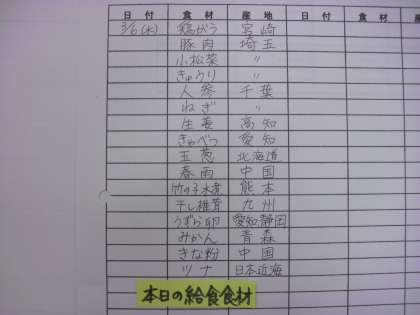 日付 食材 産地 日付 食材 産
3/6(水) 鶏がら 宮崎
豚肉 埼玉
小松菜 〃
きゅうり 〃
人参 千葉
ねぎ 〃
生姜 高知
きゃべつ 愛知
玉葱 北海道
春雨 中国
竹の子水煮 熊本
干し椎茸 九州
うずら卵 愛知静岡
みかん 青森
きな粉 中国
ツナ 日本近海
本日の給食食材